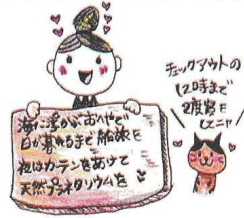 海に望がおへやで
日が暮れるまで船旅を
夜はカーテンをあけて
天然プラネタリウムを
チェックアウトの
12時まで
2度寝を
してニャ